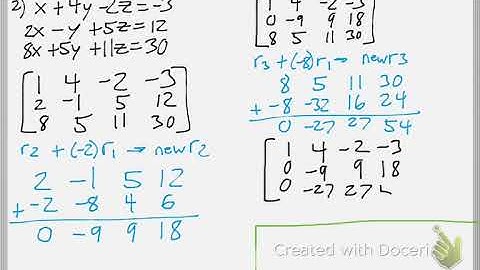 2) x + 4y - 2z = -3
2x - y + 5z = 12
8x + 5y + 11z = 30
1 4 -2 -3
2 -1 5 12
8 5 11 30
r2 + (-2)r1 → new r2
2 -1 5 12
+ -2 -8 4 6
0 -9 9 18
1 4 -2 -3
0 -9 9 18
8 5 11 30
r3 + (-8)r1 → new r3
8 5 11 30
+ -8 -32 16 24
0 -27 27 54
1 4 -2 -3
0 -9 9 18
0 -27 27
Created with Doceri